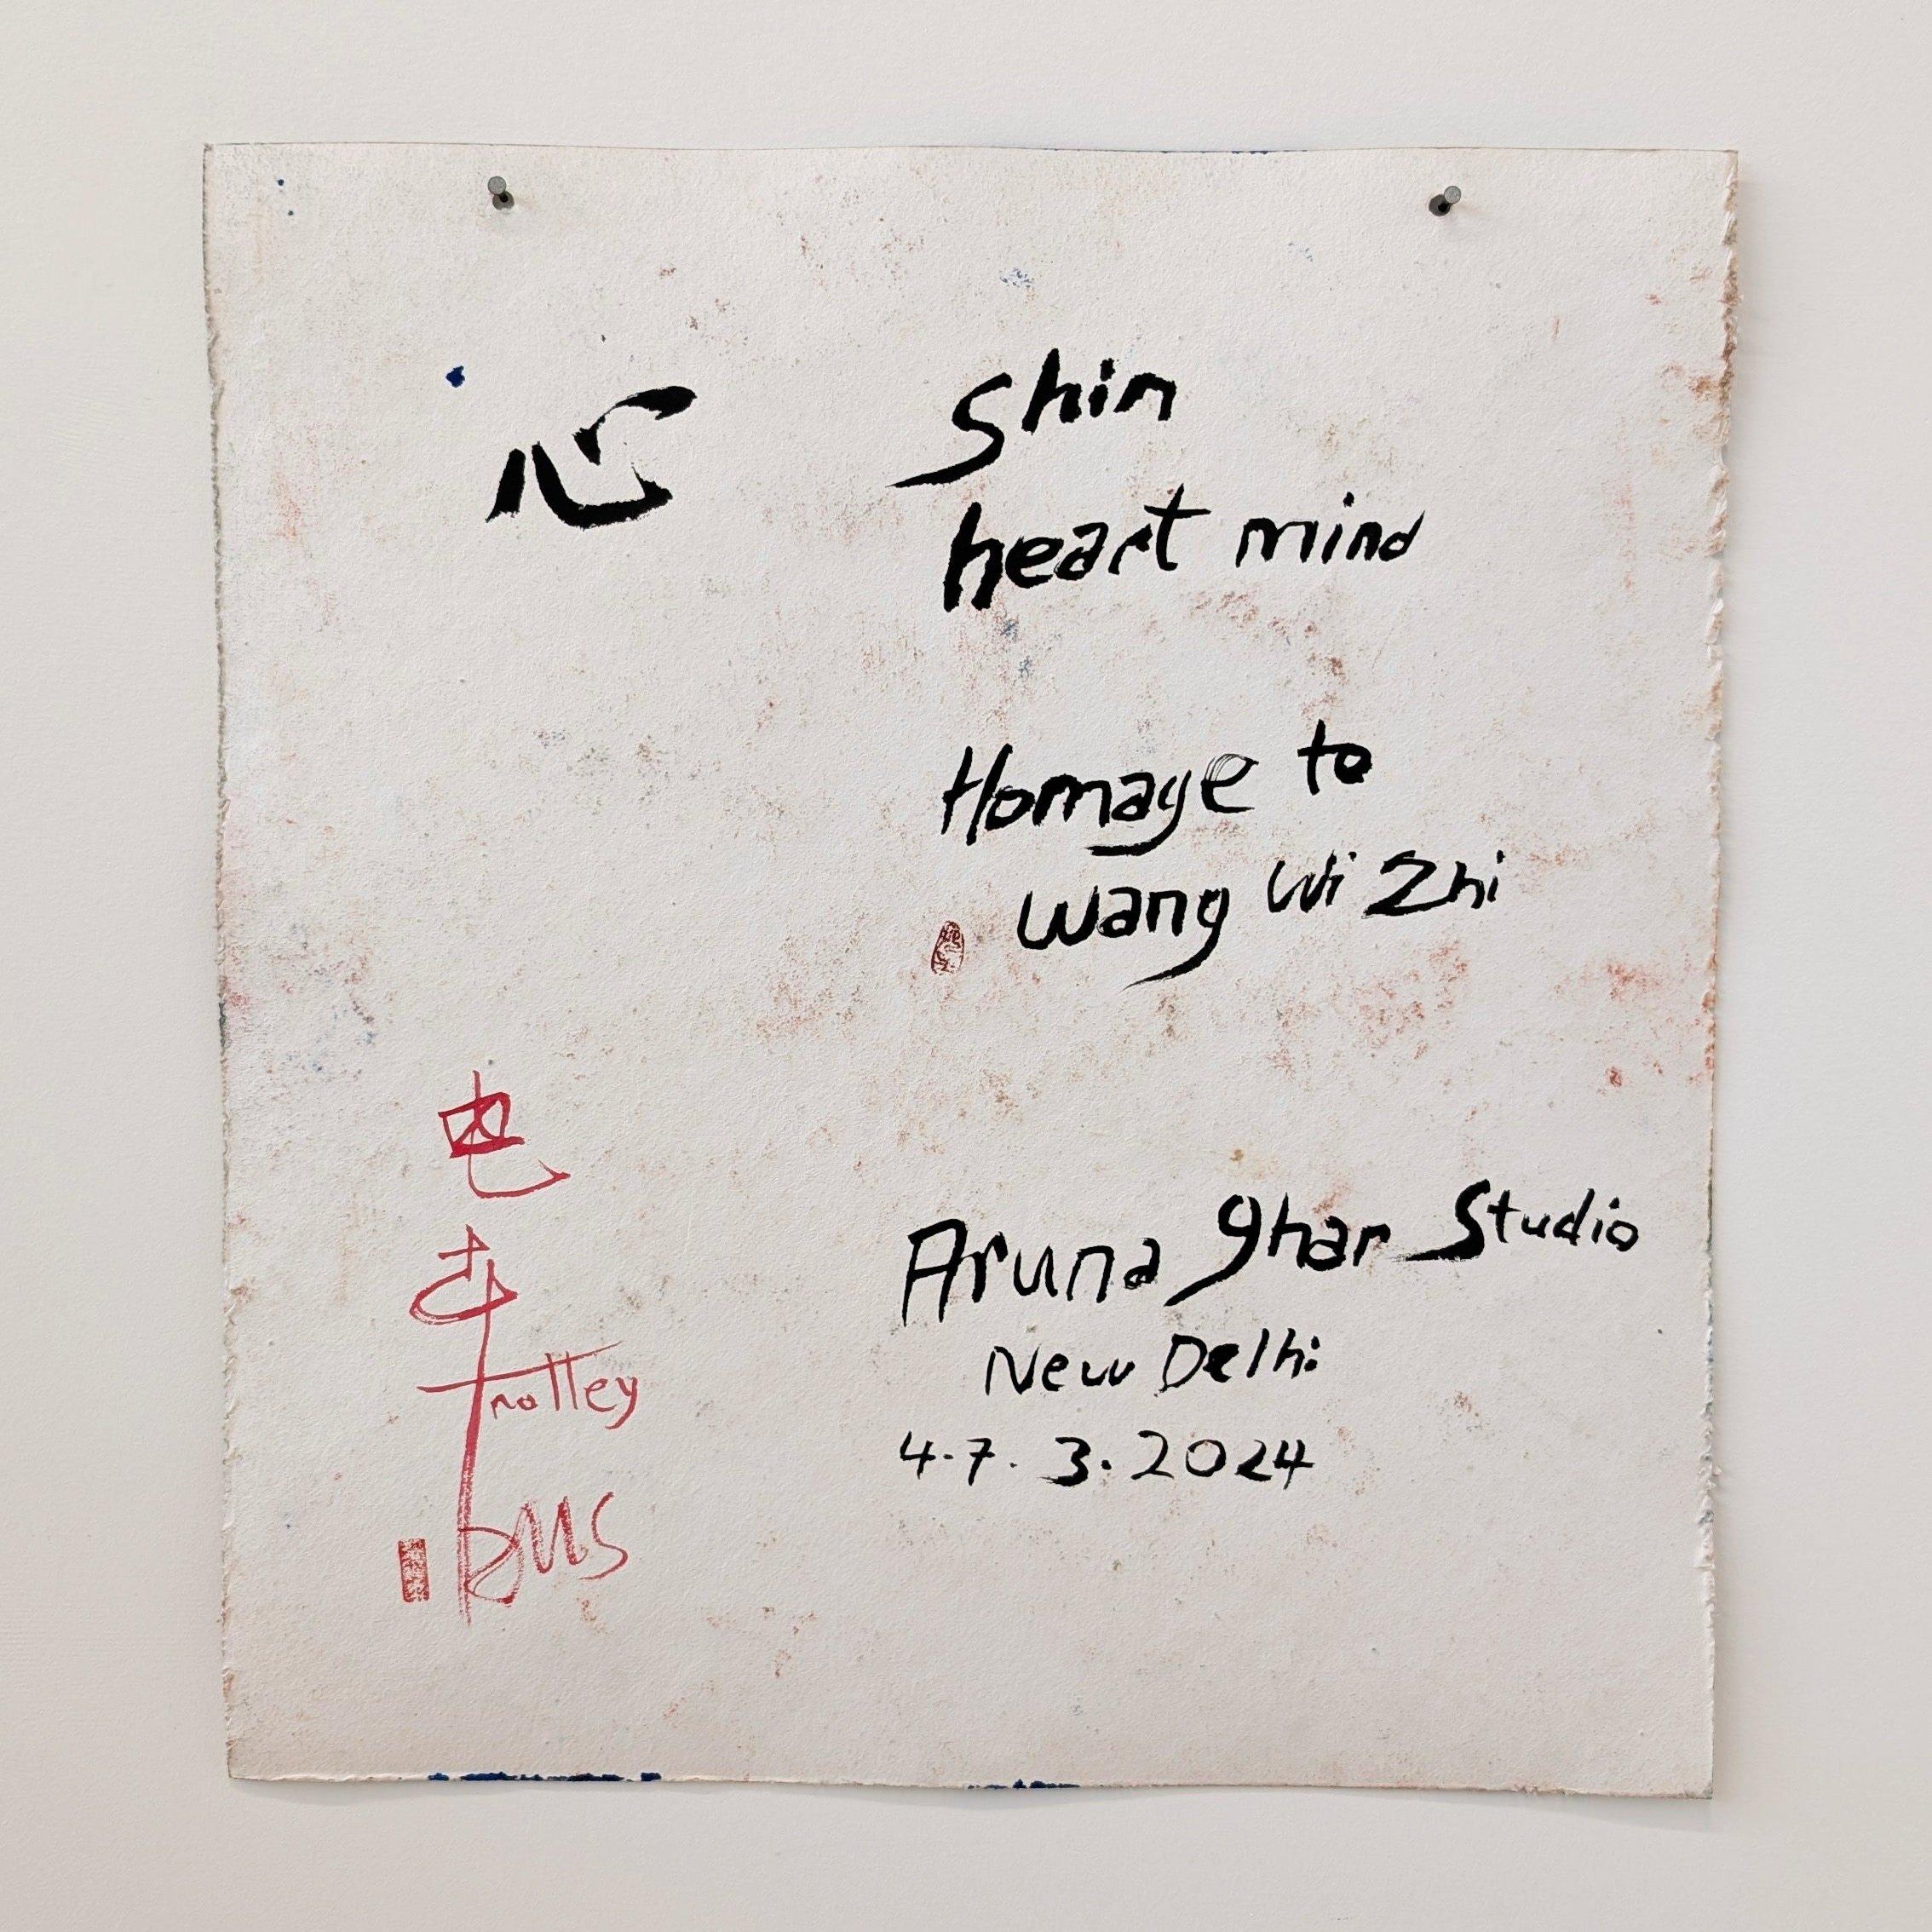 心
Shin
heart mind
Homage to
Wang Wi Zhi
Aruna ghar Studio
New Delhi
4.7.3.2024
电车
Trolley
BUS